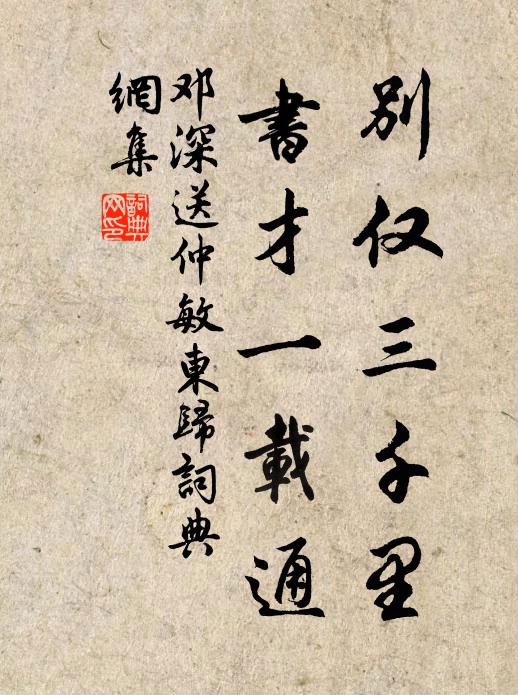 别仅三千里
書才一載通
邓深送仲敏東歸詞典
網集
詞典
网印